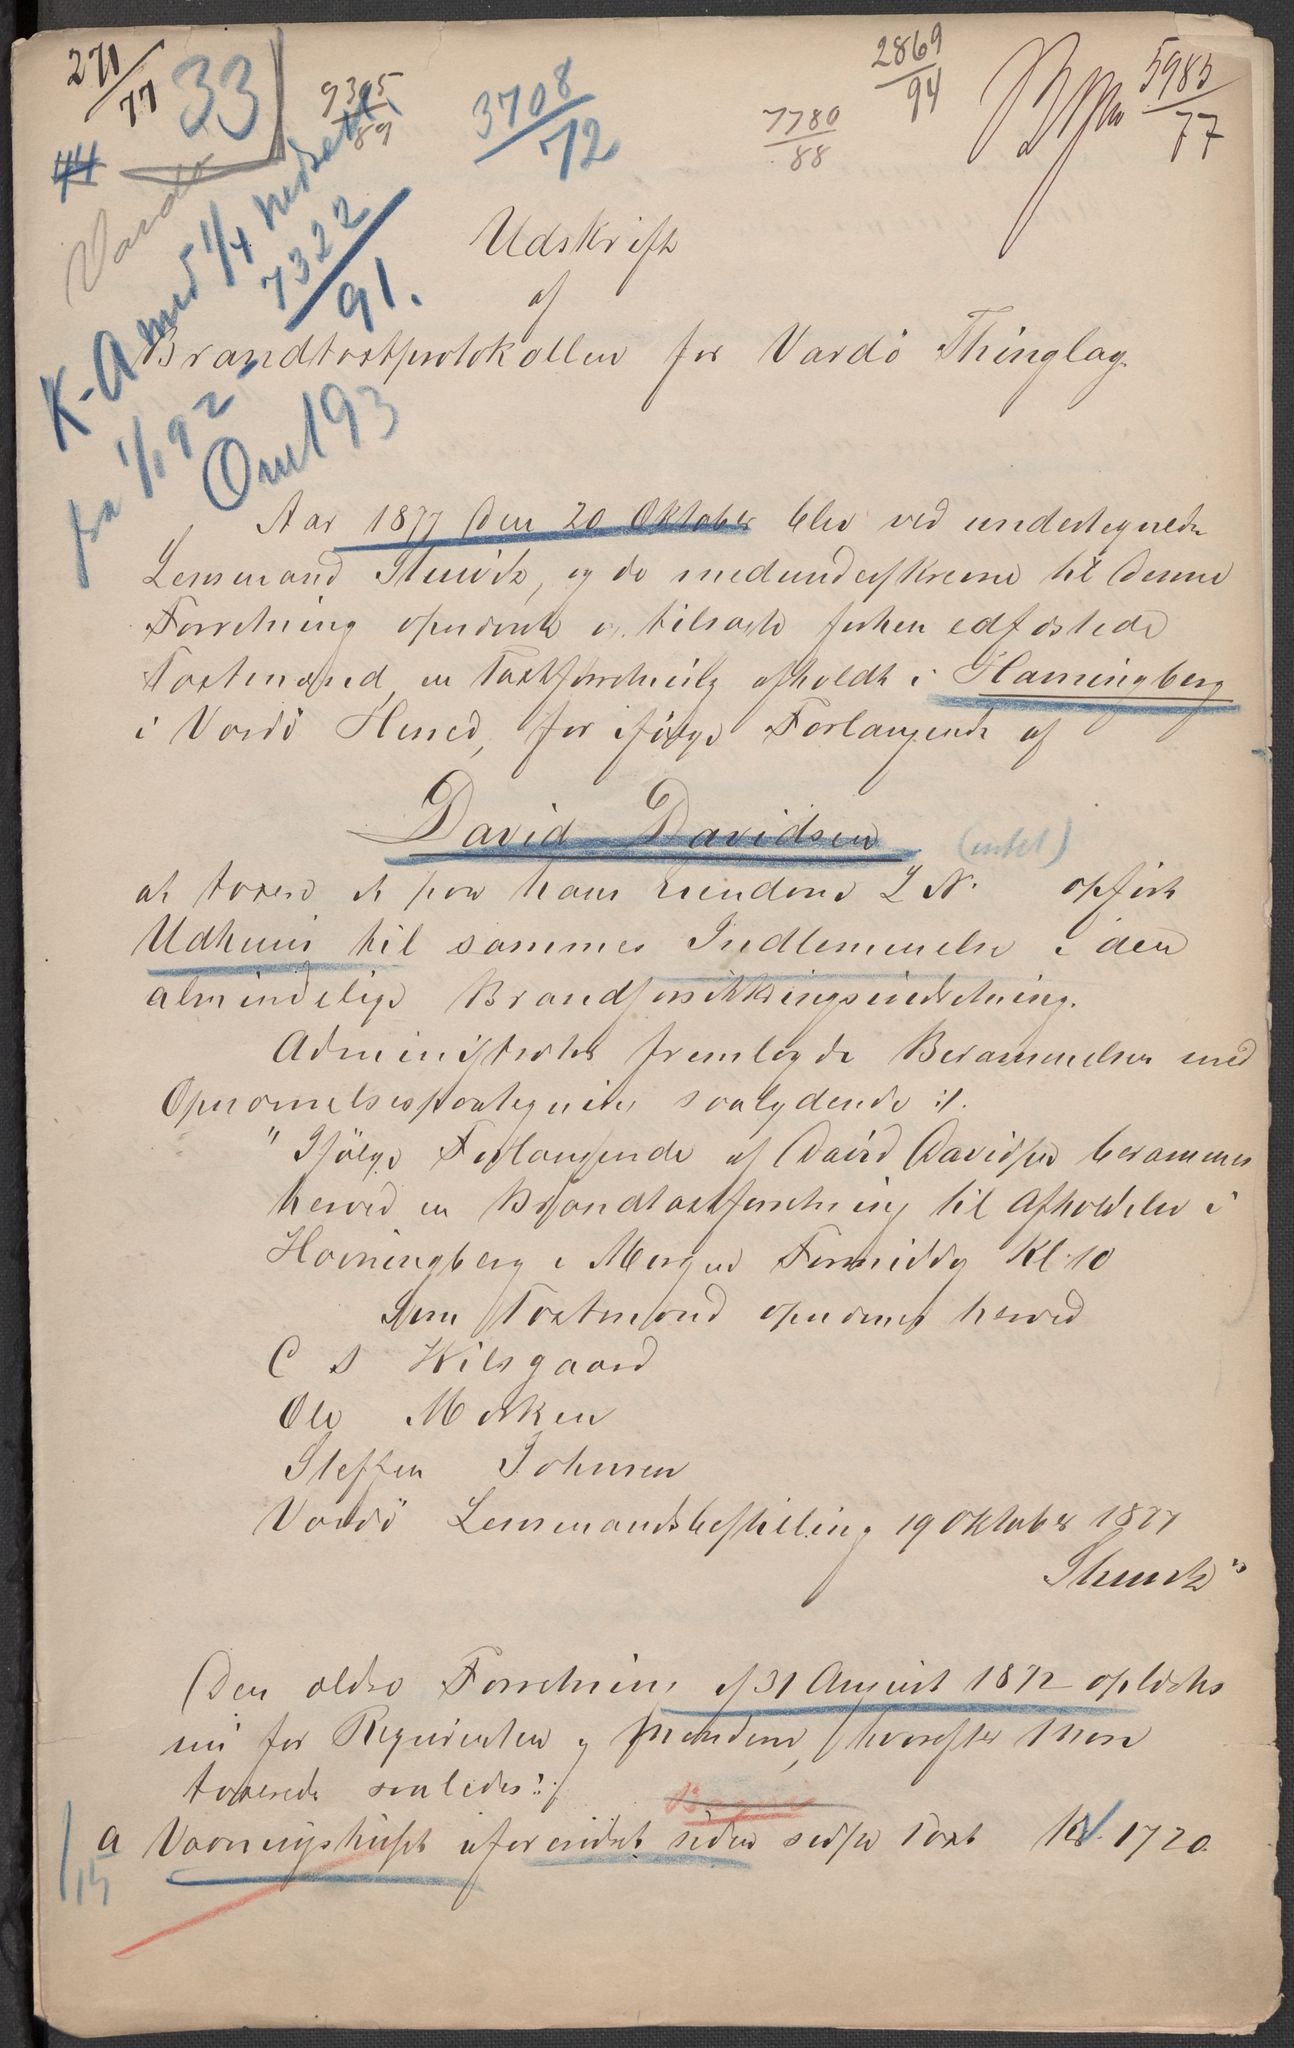 271/77 33 9305/89 3708/72 2869/94 7780/88 5985/77
44
Vardø
K-A med 1/4 nedsatt
7322/91.
fra 1/1 92
Om 193
Udskrift
af
Brandtaxtprotokollen for Vardö Thinglag.
Aar 1877 den 20 Oktober blev ved undertegnede
Lensmand, og de medunderskrevne til denne
Forretning opnævnte og tilsagte forhen edfæstede
Taxtmænd en Taxtforretning afholdt i Hamingberg
i Vardö Herred, for ifölge Forlangende af
David Davidsen (intet)
at taxere et paa hans Eiendom L N. opfört
Udhuus til sammes Indlemmelse i den
almindelige Brandforsikkringsindretning.
Administrator fremlagde Berammelsen med
Opnævnelsespaategning saalydende :/:
"Ifölge Forlangende af David Davidsen berammes
herved en Brandtaxtforretning til Afholdelse i
Havningberg i Morgen Formiddag Kl. 10
Som Taxtmænd opnævnes herved
C S Kilsgaard
Ole Morken
Steffen Johnsen
Vardö Lensmandsbestilling 19 Oktober 1877
Den ældre Forretning af 31 August 1872 oplæstes
nu for Rekvirenten og Mændene, hvorefter man
taxerede saaledes:/:
a Vaaningshuset uforandret siden sidste Taxt Kr. 1720.
15